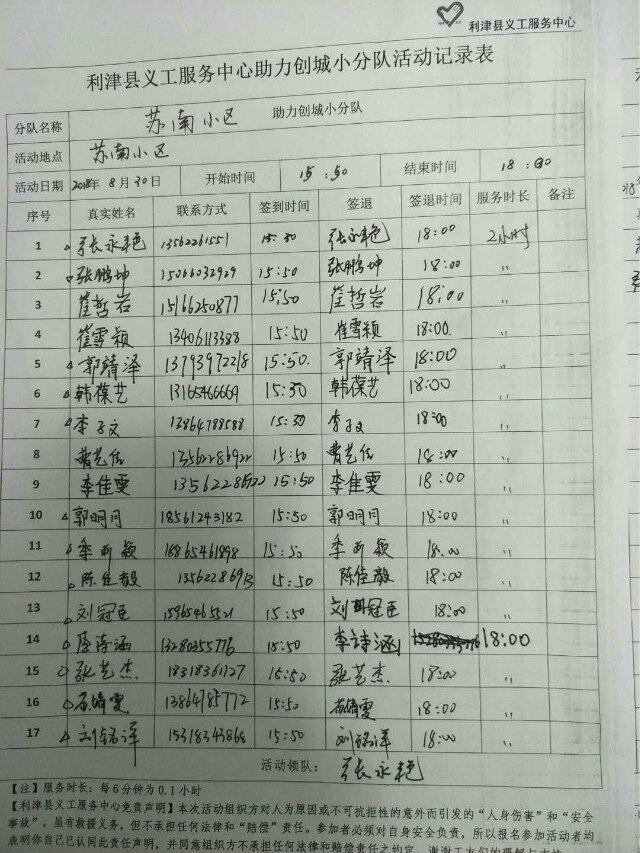 利津县义工服务中心
利津县义工服务中心助力创城小分队活动记录表
分队名称 苏南小区 助力创城小分队
活动地点 苏南小区
活动日期 2018年8月30日 开始时间 15:50 结束时间 18:00
序号 真实姓名 联系方式 签到时间 签退 签退时间 服务时长 备注
1 张永艳 13562261551 15:50 张永艳 18:00 2小时
2 张鹏坤 15066032929 15:50 张鹏坤 18:00 〃
3 崔哲岩 15166250877 15:50 崔哲岩 18:00 〃
4 崔雪颖 13406113388 15:50 崔雪颖 18:00 〃
5 郭靖泽 13793972218 15:50 郭靖泽 18:00 〃
6 韩葆艺 13165466669 15:50 韩葆艺 18:00 〃
7 李子文 13864788588 15:50 李子文 18:00 〃
8 13562286922 15:50 18:00 〃
9 李佳雯 13562286922 15:50 李佳雯 18:00 〃
10 郭明月 18561243182 15:50 郭明月 18:00 〃
11 18865461898 15:50 18:00 〃
12 陈佳毅 13562286913 15:50 陈佳毅 18:00 〃
13 刘冠臣 15965465521 15:50 刘冠臣 18:00 〃
14 13280355776 15:50 李诗涵 18:00
15 张艺杰 18318361127 15:50 张艺杰 18:00 〃
16 13864785772 15:50 18:00 〃
17 刘铭洋 15318343868 15:50 刘铭洋 18:00 〃
活动领队： 张永艳
【注】服务时长：每6分钟为0.1小时
【利津县义工服务中心免责声明】本次活动组织方对人为原因或不可抗拒性的意外而引发的“人身伤害”和“安全
事故”，虽有救援义务，但不承担任何法律和“赔偿”责任。参加者必须对自身安全负责，所以报名参加活动者均
表明你自己已认同此责任声明，并同意组织方不承担任何法律和赔偿责任之约定。